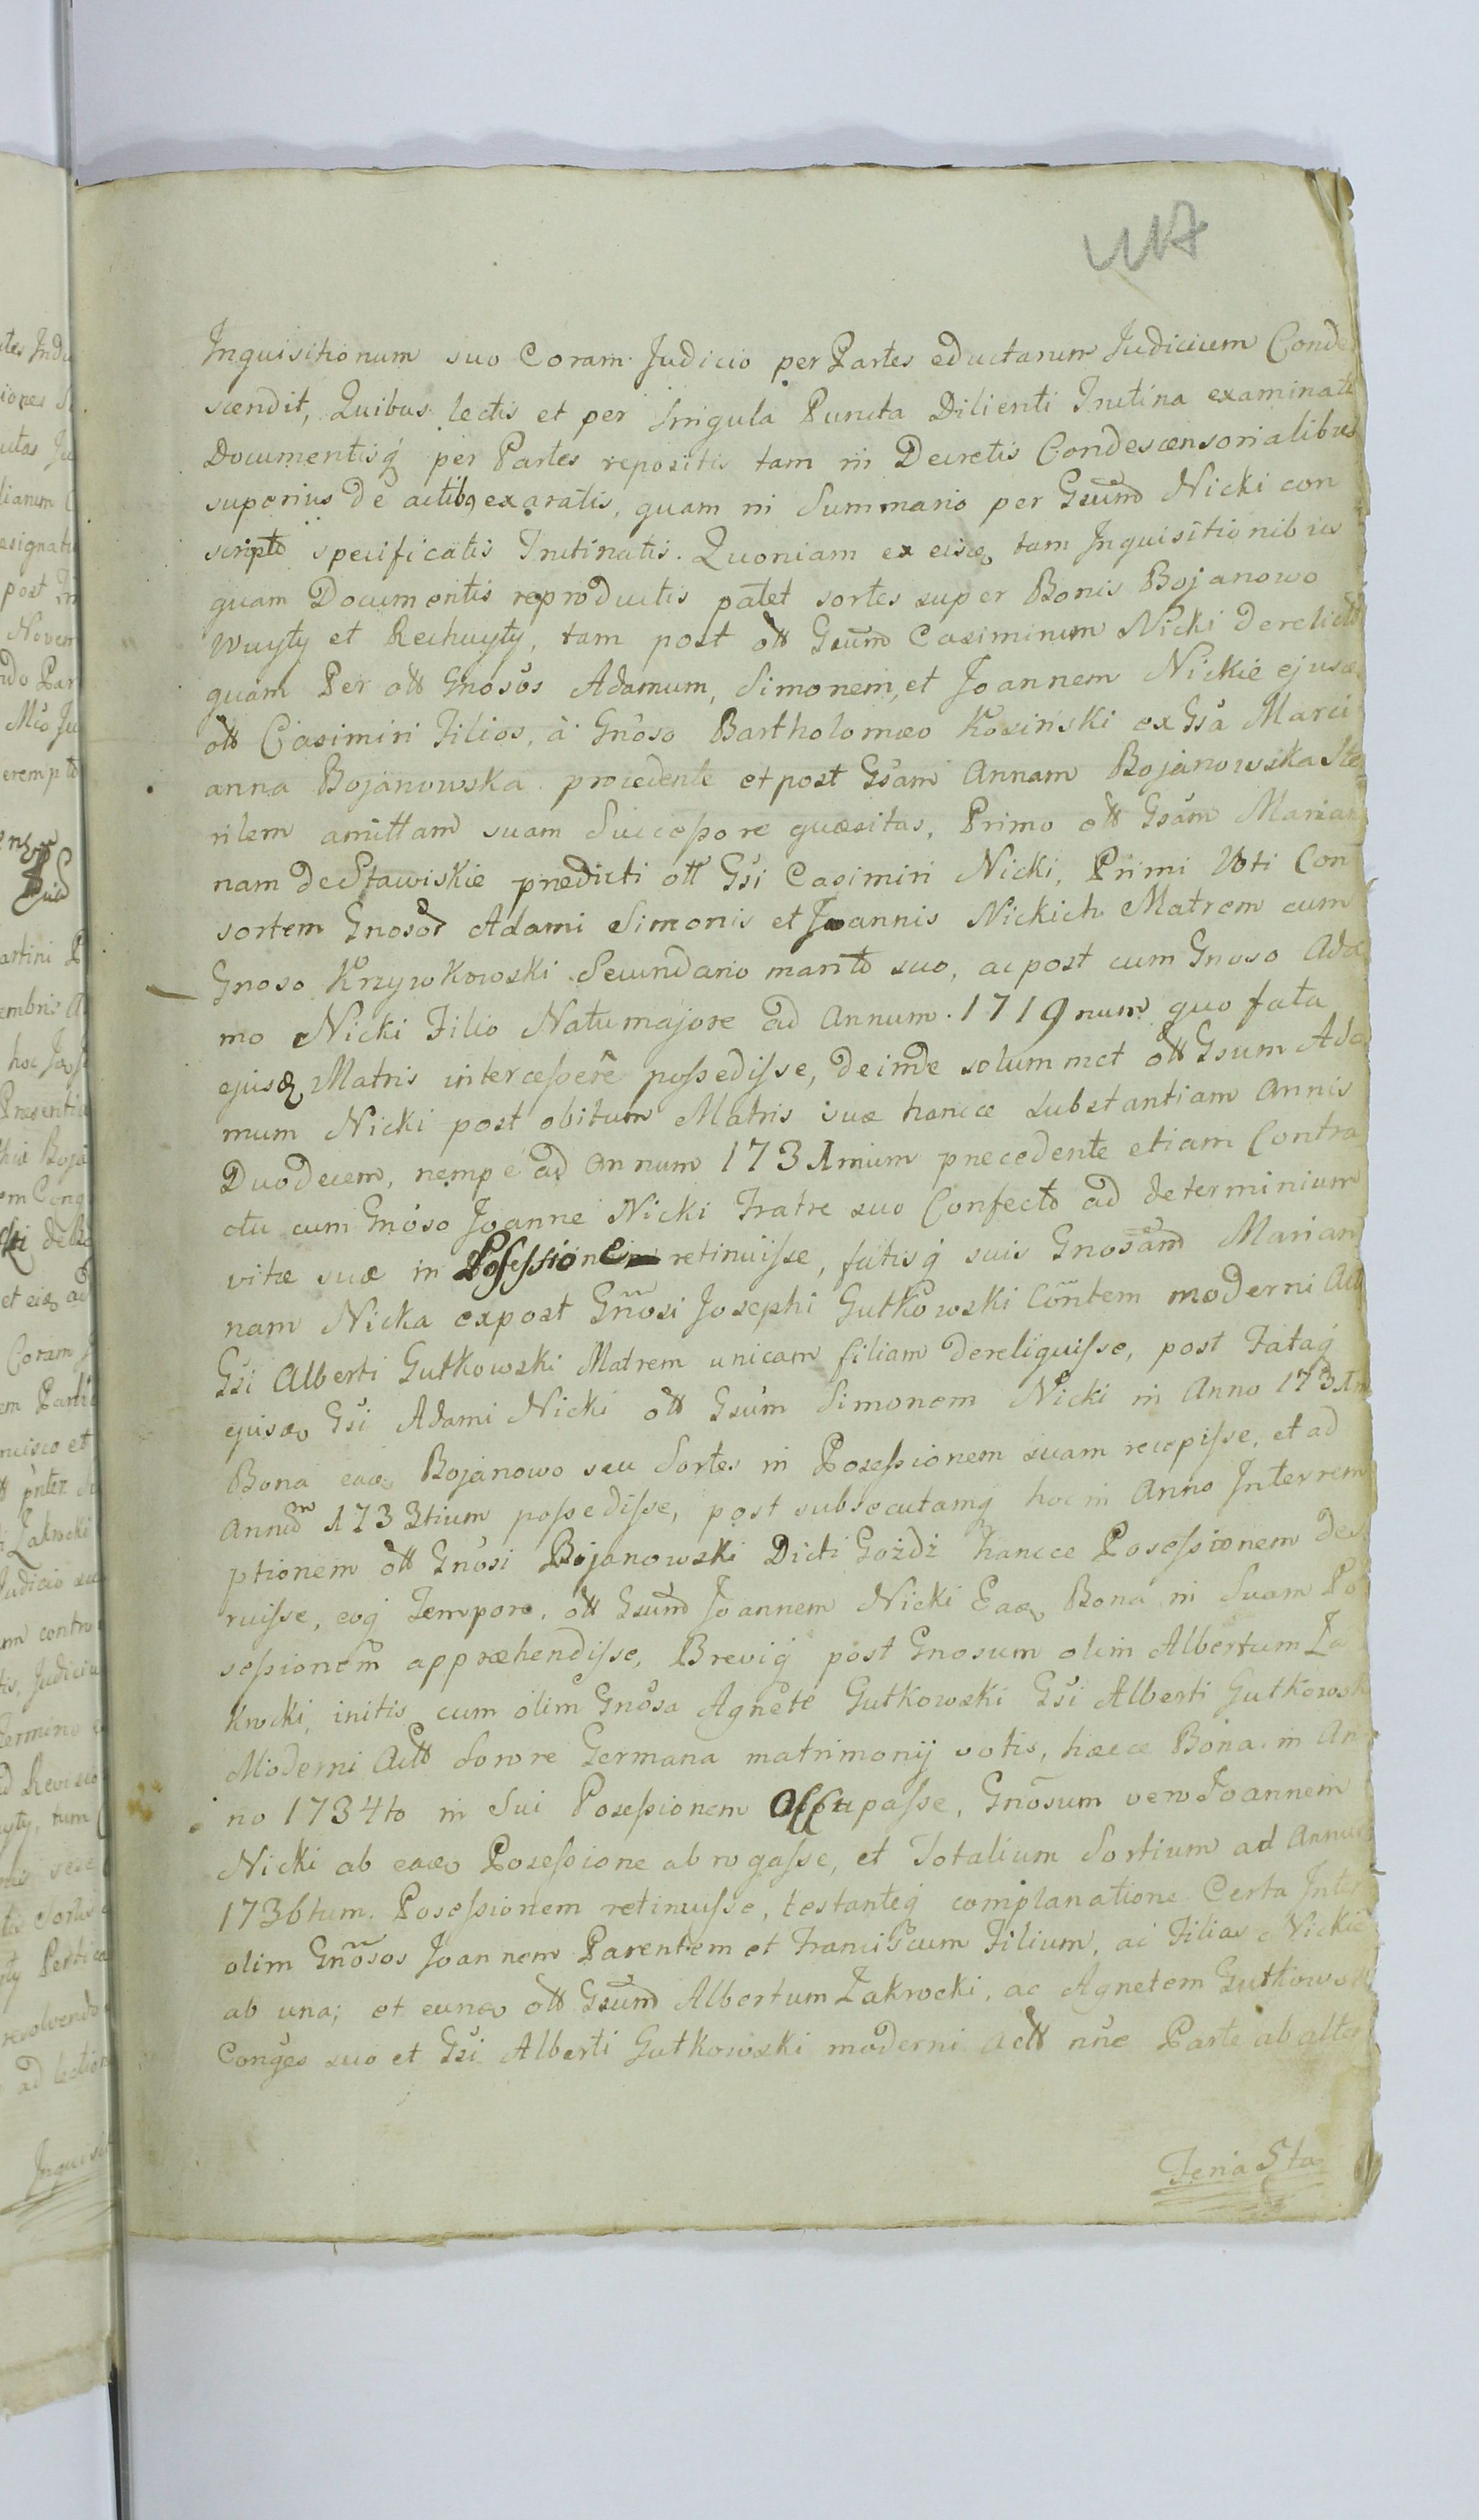 Inquisitionum suo Coram Judicio per Partes eductarum Judicium Conde
scendit, Quibus lectis et per Singula Puncta Dilienti Trutina examinatis
Documentisq́ per Partes repositis tam in Decretis Condescensorialibus
superius de actibq exaratis, quam in Summario per Gsum Nicki con
scripto specificatis Trutinatis. Quoniam ex eisdo tam Inquisitionibus
quam Documentis reproductis patet sortes super Bonis Bojanowo
Wuyty et Rechuyty, tam post ott Gsum Casimirum Nicki derelictas
quam Per ott Gnosos Adamum, Simonem, et Joannem Nickie ejusdo
ott Casimiri Filios, à Gnoso Bartholomæo Kosiński ex Gsa Marci
anna Bojanowska procedente et post Gsam Annam Bojanowska Ste
rilem amittam suam Successore quæsitas, Primo ott Gsam Marian
nam de Stawiskie prædicti ott Gsi Casimiri Nicki, Primi Voti Con
sortem Gnosor Adami Simonis et Joannis Nickich Matrem cum
Gnoso Krzywkowski Secundario marito suo, ac post cum Gnoso Ada
mo Nicki Filio Natu majore ad Annum 1719num quo fata
ejusd Matris intercessere possedisse, deinde solummet ott Gsum Ada
mum Nicki post obitum Matris suæ hancce substantiam Annis
Duodecem, nempe ad annum 1731mum præcedente etiam Contra
ctu cum Gnoso Joanne Nicki Fratre suo Confecto ad determinium
vitæ suæ in Possessione retinuisse, fatisq́ suis Gnosam Marian
nam Nicka expost Gnosi Josephi Gutkowski Contem moderni Act
Gsi Alberti Gutkowski Matrem unicam filiam dereliquisse, post Fataq́
ejusdo Gsi Adami Nicki ott Gsum Simonem Nicki in Anno 1731m
Bona eado Bojanowo seu Sortes in Posessionem suam recepisse, et ad
Annum 1733tium possedisse, post subsecutamq́ hoc in Anno Interrem
ptionem ott Gnosi Bojanowski Dicti Gożdż hancce Posessionem dese
ruisse, eoq́ Tempore, ott Gsum Joannem Nicki Eado Bona in Suam Po
sessionem appræhendisse, Breviq́ post Gnosum olim Albertum Za
krocki, initis cum olim Gnosa Agnete Gutkowski Gsi Alberti Gutkowski
Moderni Actt Sorore Germana matrimonij votis, hæcce Bona in An
no 1734to in Sui Posessionem Occupasse, Gnosum vero Joannem
Nicki ab eado Posessione abrogasse, et Totalium Sortium ad Annum
1736tum. Posessionem retinuisse, testanteq́ complanatione Certa Inter
olim Gnosos Joannem Parentem et Franciscum Filium, ac Filias Nickie
ab una; et eundo ott Gsum Albertum Zakrocki, ac Agnetem Gutkowski
Conges suo et Gsi Alberti Gutkowski moderni Actt nne Parte ab altera
Feria 5ta